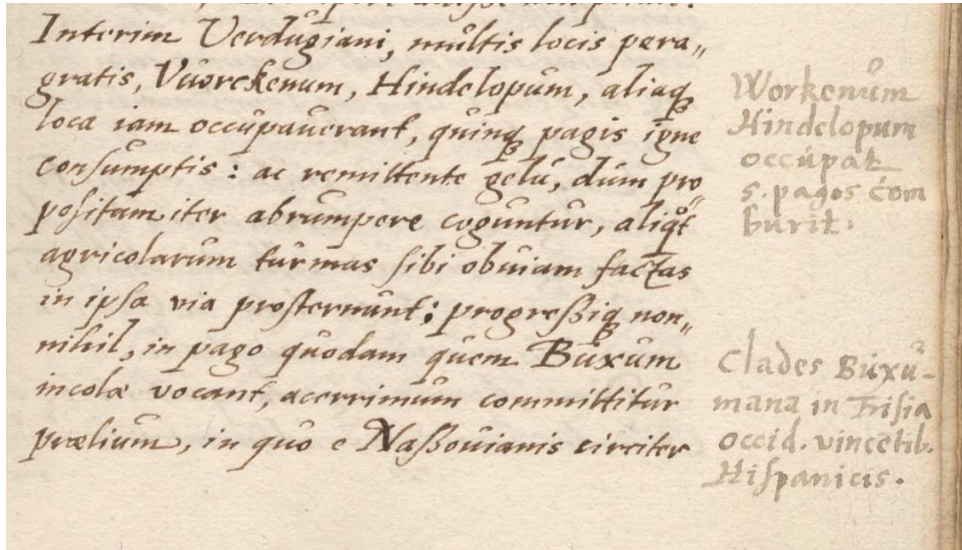 Interim Verdugiani, multis locis pera„
gratis, Vuorckenum, Hindelopum, aliaqꝫ
loca iam occupauerant, quinqꝫ pagis igne
consumptis: ac remittente gelu, dum pro„
positam iter abrumpere coguntur, aliqͦt
agricolarum turmas sibi obuiam factas
in ipsa via prosternunt; progreßiqꝫ non„
nihil, in pago quodam quem Buxum
incolæ vocant, acerrimum committitur
prælium, in quo e Naßouianis circiter
Workenum
Hindelopum
occupat
5. pagos com
burit.
Clades Buxu-
mana in Frisia
occid. vincētib.
Hispanicis.